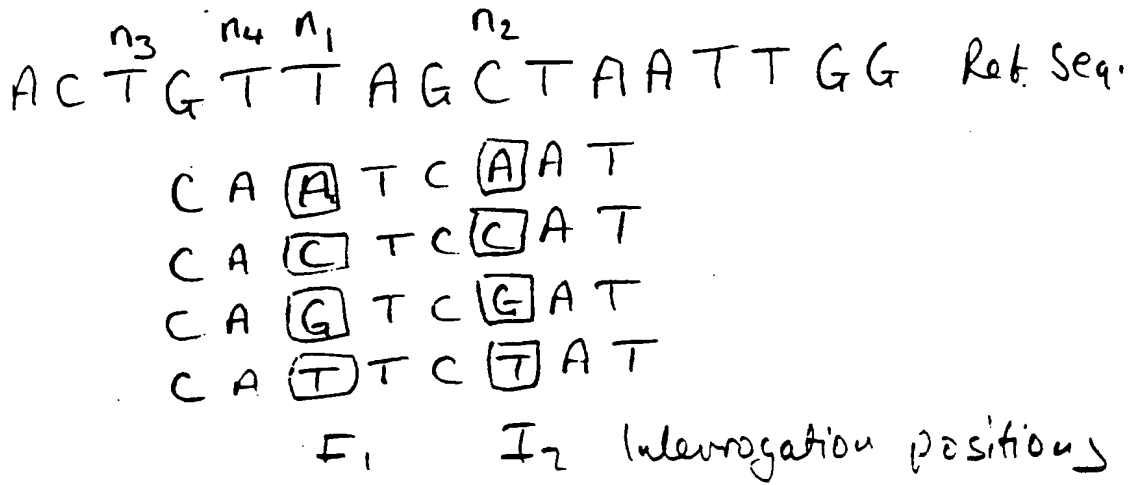 n3 n4 n1 n2
A C T G T T A G C T A A T T G G Ref. Seq.
C A A T C A A T
C A C T C C A T
C A G T C G A T
C A T T C T A T
I1 I2 Interrogation positions